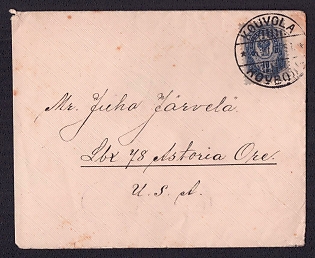 KOUVOLA
КОУВОЛА
Mr. Juho Järvelä
Lbx 78 Astoria Ore.
U. S. A.